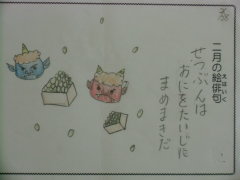 二月の絵俳句
えはいく
せつぶんは
おにをたいじに
まめまきだ